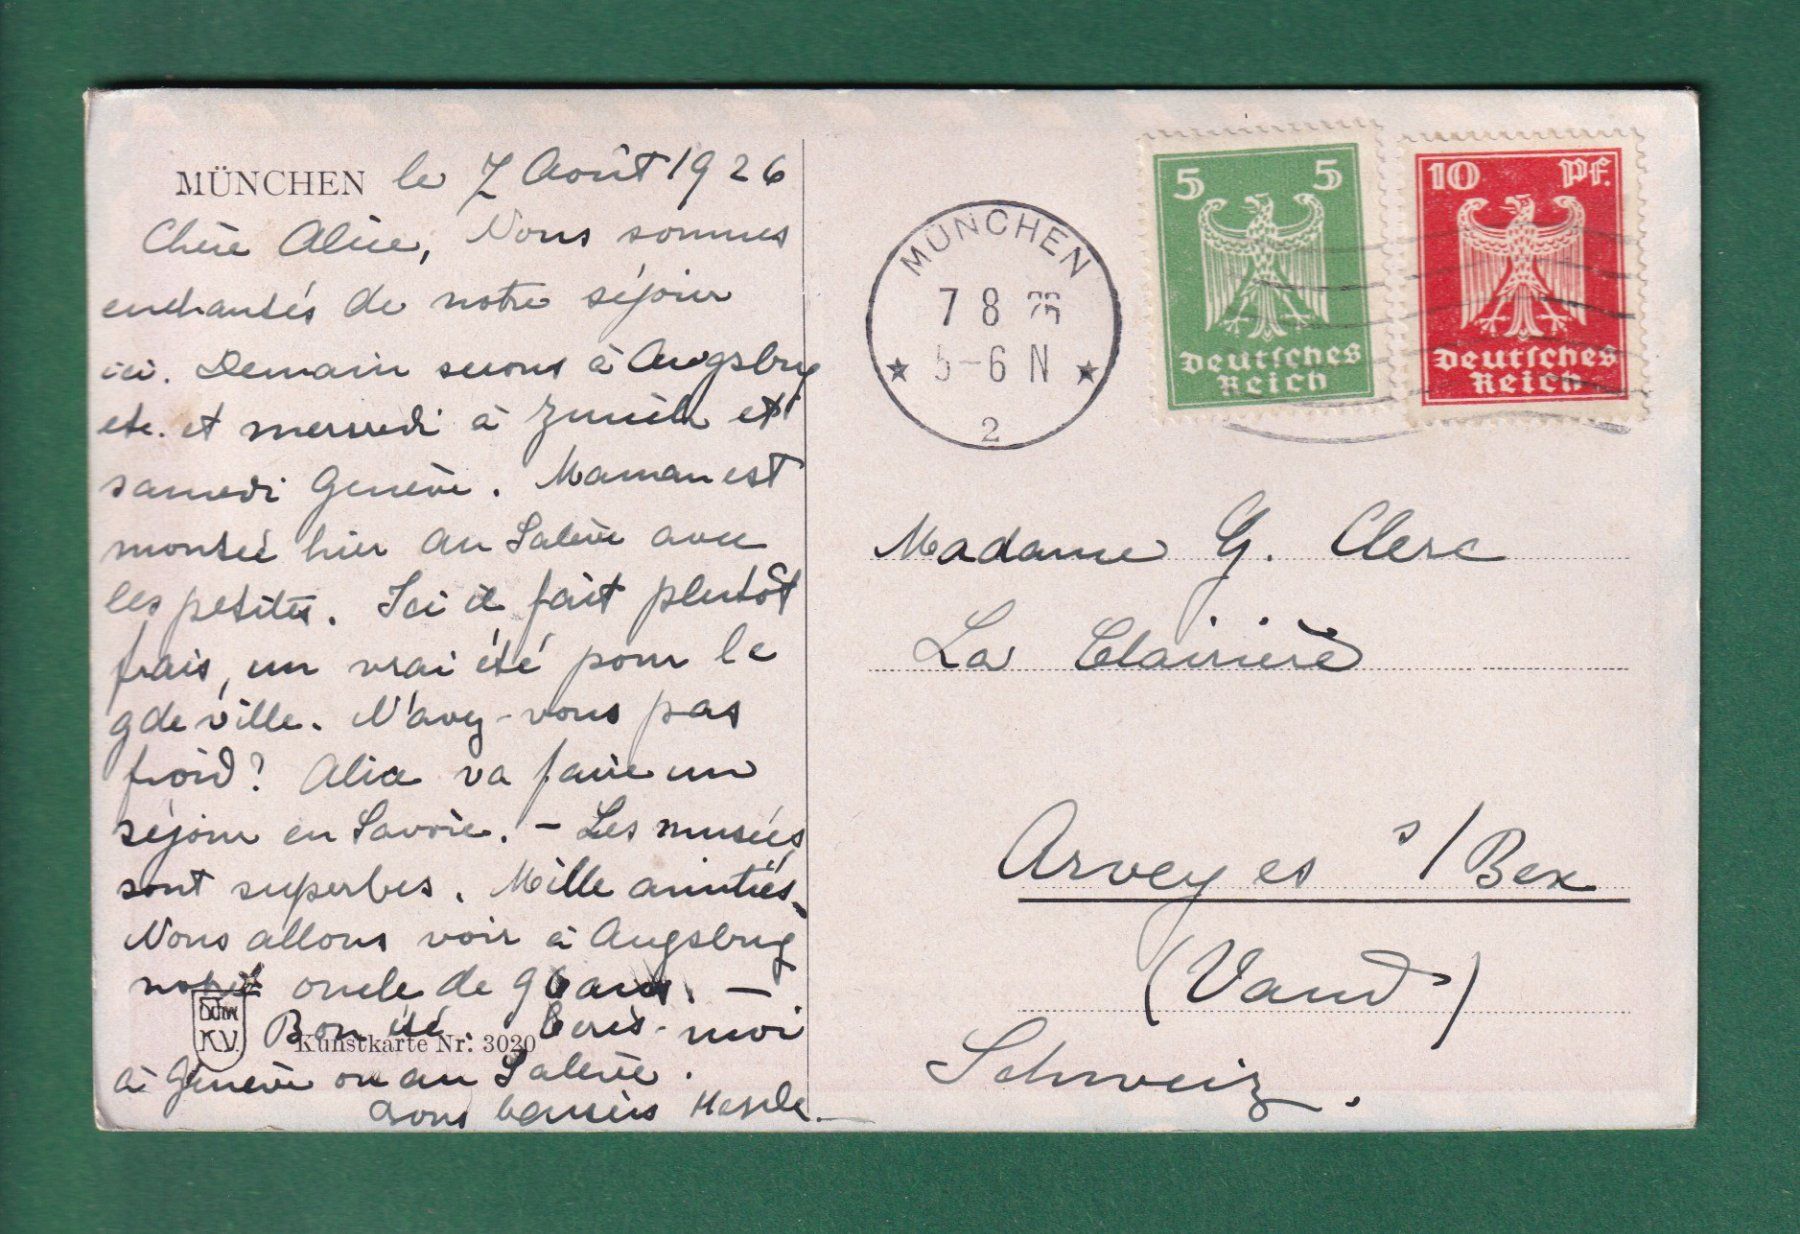 MÜNCHEN le 7 Août 1926
Chère Alice, Nous sommes
enchantés de notre séjour
ici. Demain serons à Augsbrg
etc. et mercredi à Zurich et
samedi Genève. Maman est
montée hier au Salève avec
les petites. Ici il fait plutôt
frais, un vrai été pour le
gde ville. N'avez-vous pas
froid? Alice va faire un
séjour en Savoie. - Les musées
sont superbes. Mille amitiés
Nous allons voir à Augsbrg
oncle de
Bon été. Ecris-moi
à Genève ou au Salève.
bons baisers
Kunstkarte Nr. 3020
K.V.
MÜNCHEN
7 8 26
5-6 N
2
5 5
Deutsches
Reich
10 Pf.
Deutsches
Reich
Madame G. Clerc
La Clairière
Arveyes s/Bex
(Vaud)
Schweiz.